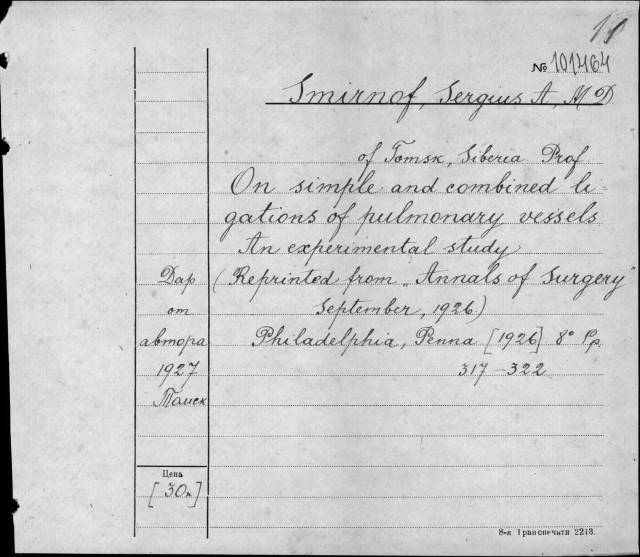 11
№ 101464
Smirnof, Sergius A, M D.
of Tomsk, Siberia. Prof
On simple and combined li-
gations of pulmonary vessels.
An experimental study.
(Reprinted from „Annals of Surgery"
September, 1926.)
Philadelphia, Penna [1926] 8° Pp.
317-322
Дар
от
автора
1927
Томск
Цена
[30к]
8-я Транспечати 2213.